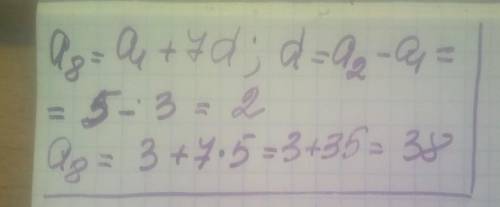 a₈ = a₁ + 7d; d = a₂ - a₁ =
= 5 - 3 = 2
a₈ = 3 + 7·5 = 3+35 = 38